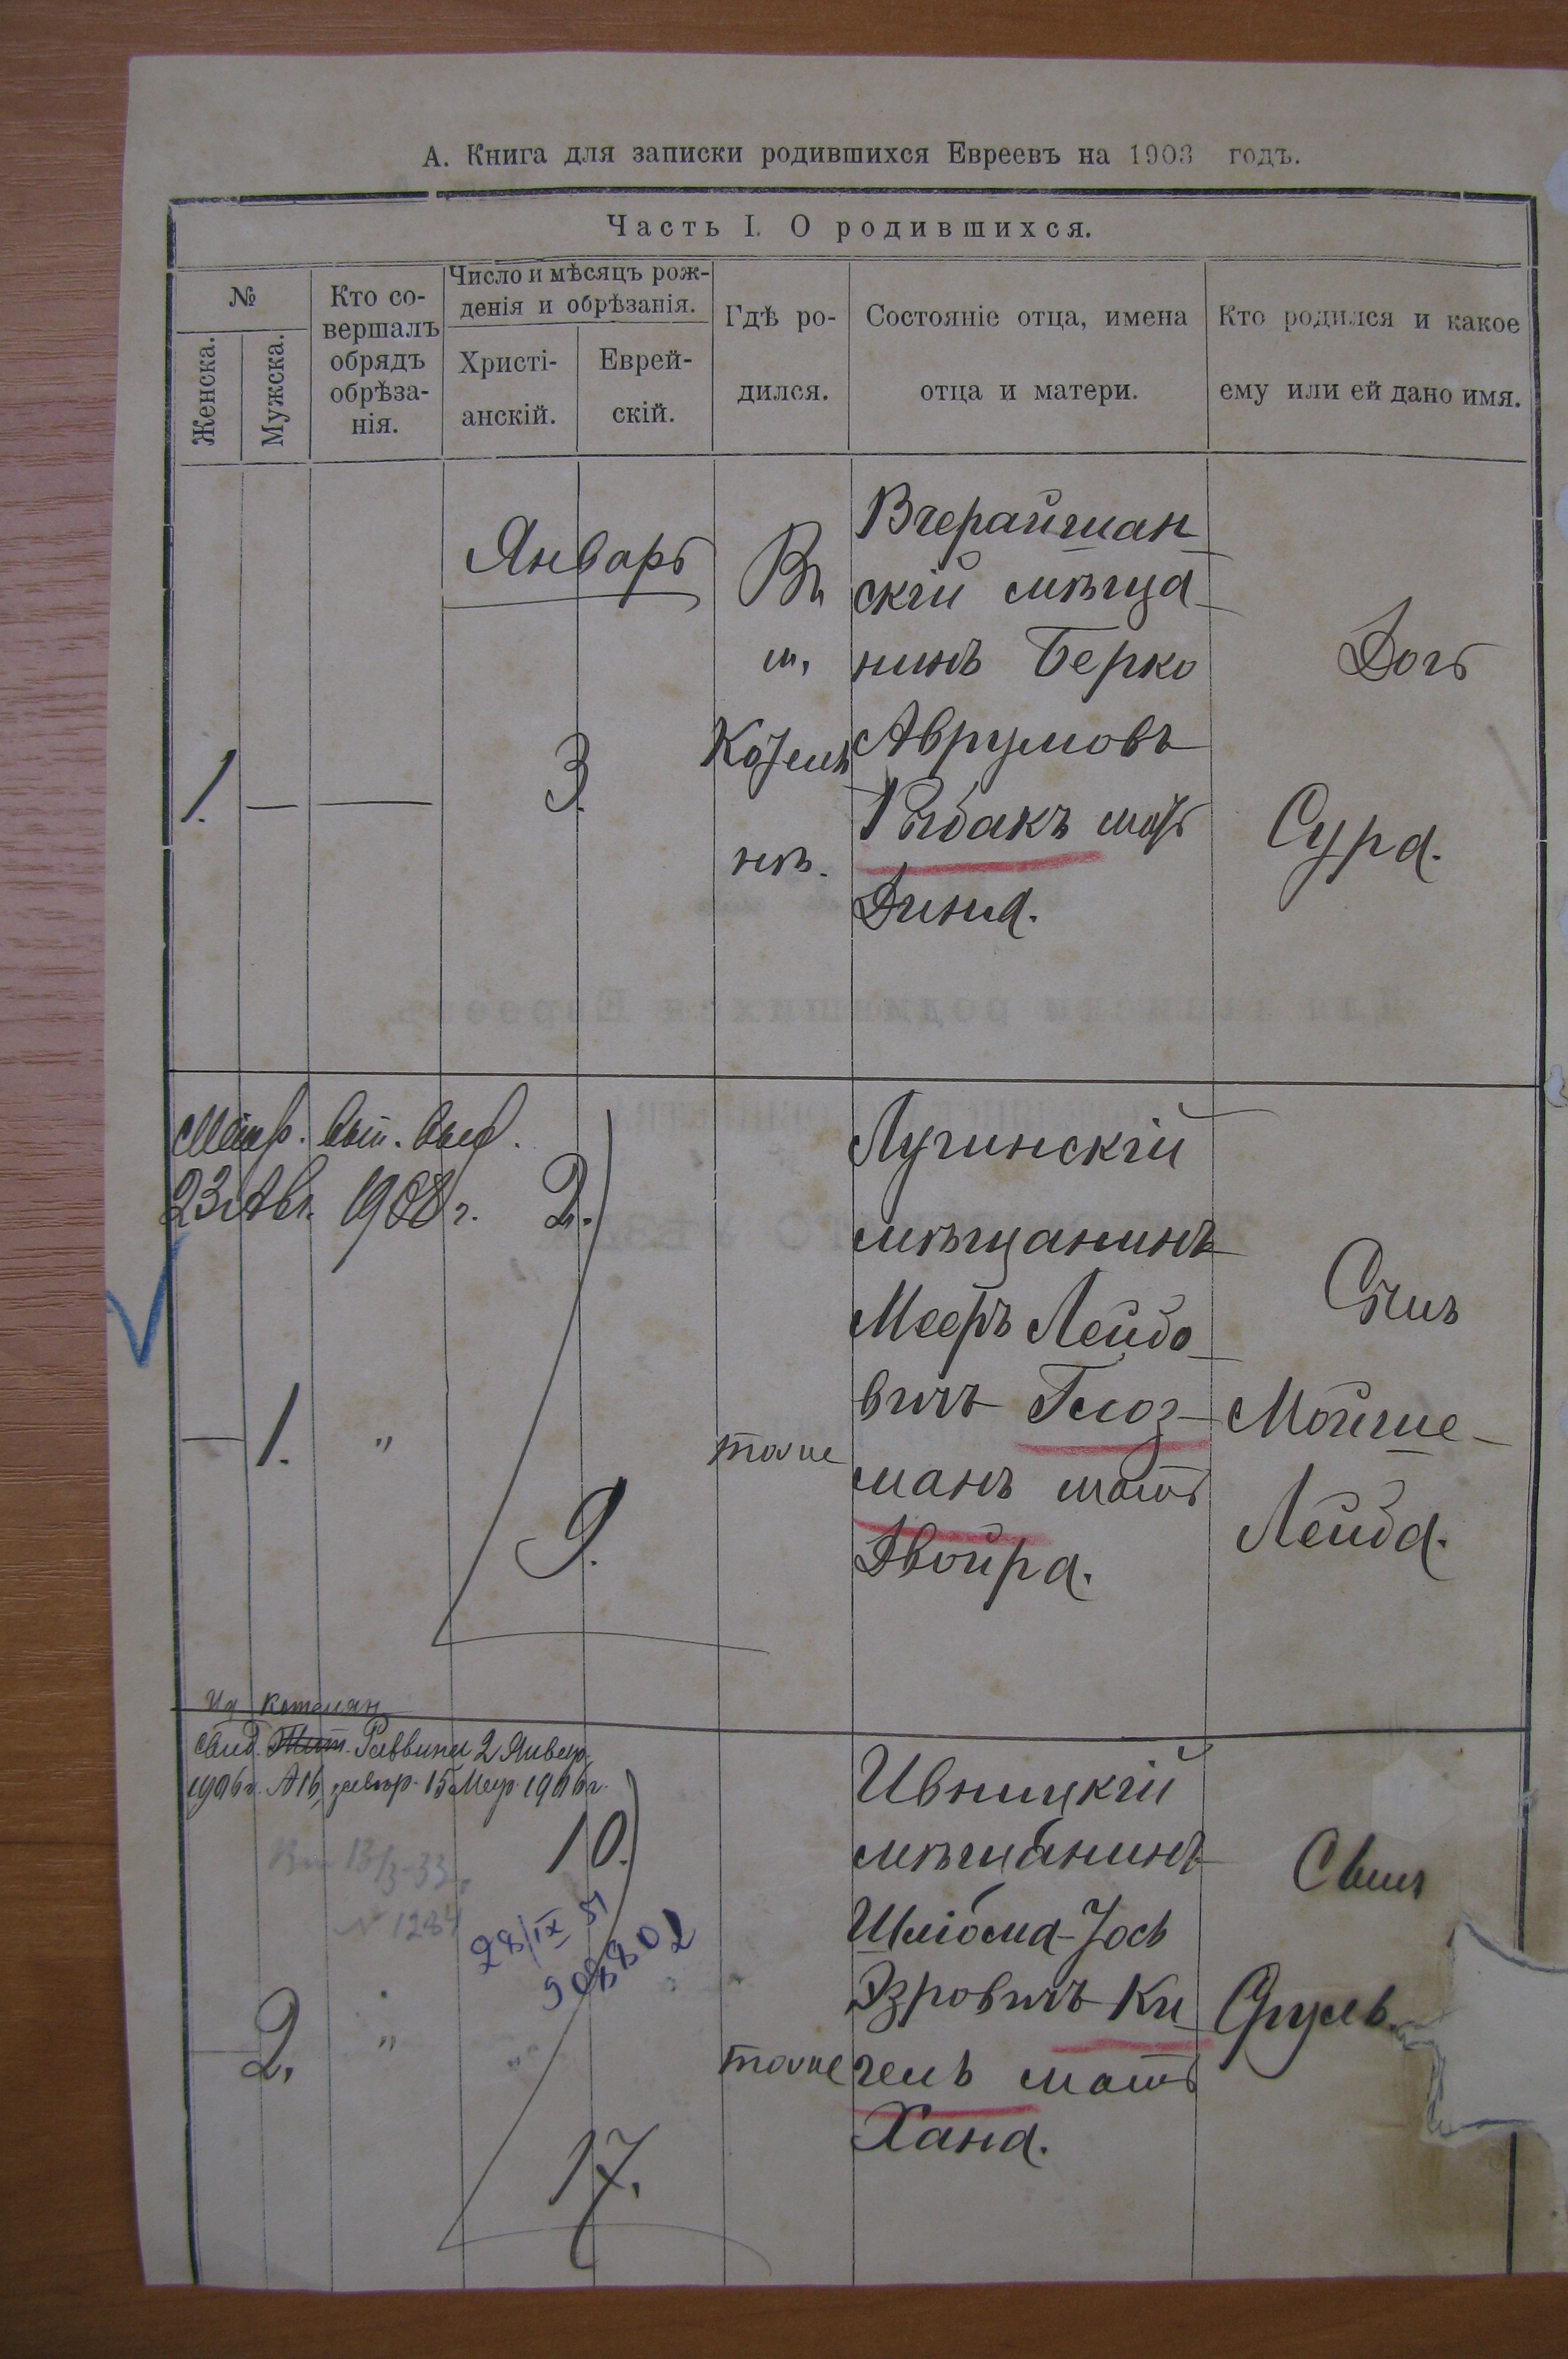 А. Книга для записки родившихся Евреевъ на 1903 годъ.
Часть I. О родившихся.
№
Женска.
Мужска.
Кто со-
вершалъ
обрядъ
обрѣза-
нія.
Число и мѣсяцъ рож-
денія и обрѣзанія.
Христі-
анскій.
Еврей-
скій.
Гдѣ ро-
дился.
Состояніе отца, имена
отца и матери.
Кто родился и какое
ему или ей дано имя.
1.
—
—
Январь
3.
Въ
м.
Котель
нѣ.
Вчерайшан
скій мѣща
нинъ Берко
Аврумовъ
Рыбакъ мать
Дина.
Дочь
Сура.
Метр. вып. выд.
23 Авг. 1908 г.
—
1.
"
2.
9.
тоже
Лугинскій
мѣщанинъ
Мееръ Лейбо
вичъ Глоз-
манъ мать
Двойра.
Сынъ
Мойше-
Лейба.
свид. Раввина 2 Января
1906 г. 15 Мар. 1906 г.
13/3-33
N 1284
28/IX 51
908802
2.
"
10.
17.
тоже
Ивницкій
мѣщанинъ
Шлёома-Іось
Эзровичъ Ки
чель мать
Хана.
Сынъ
Сруль.